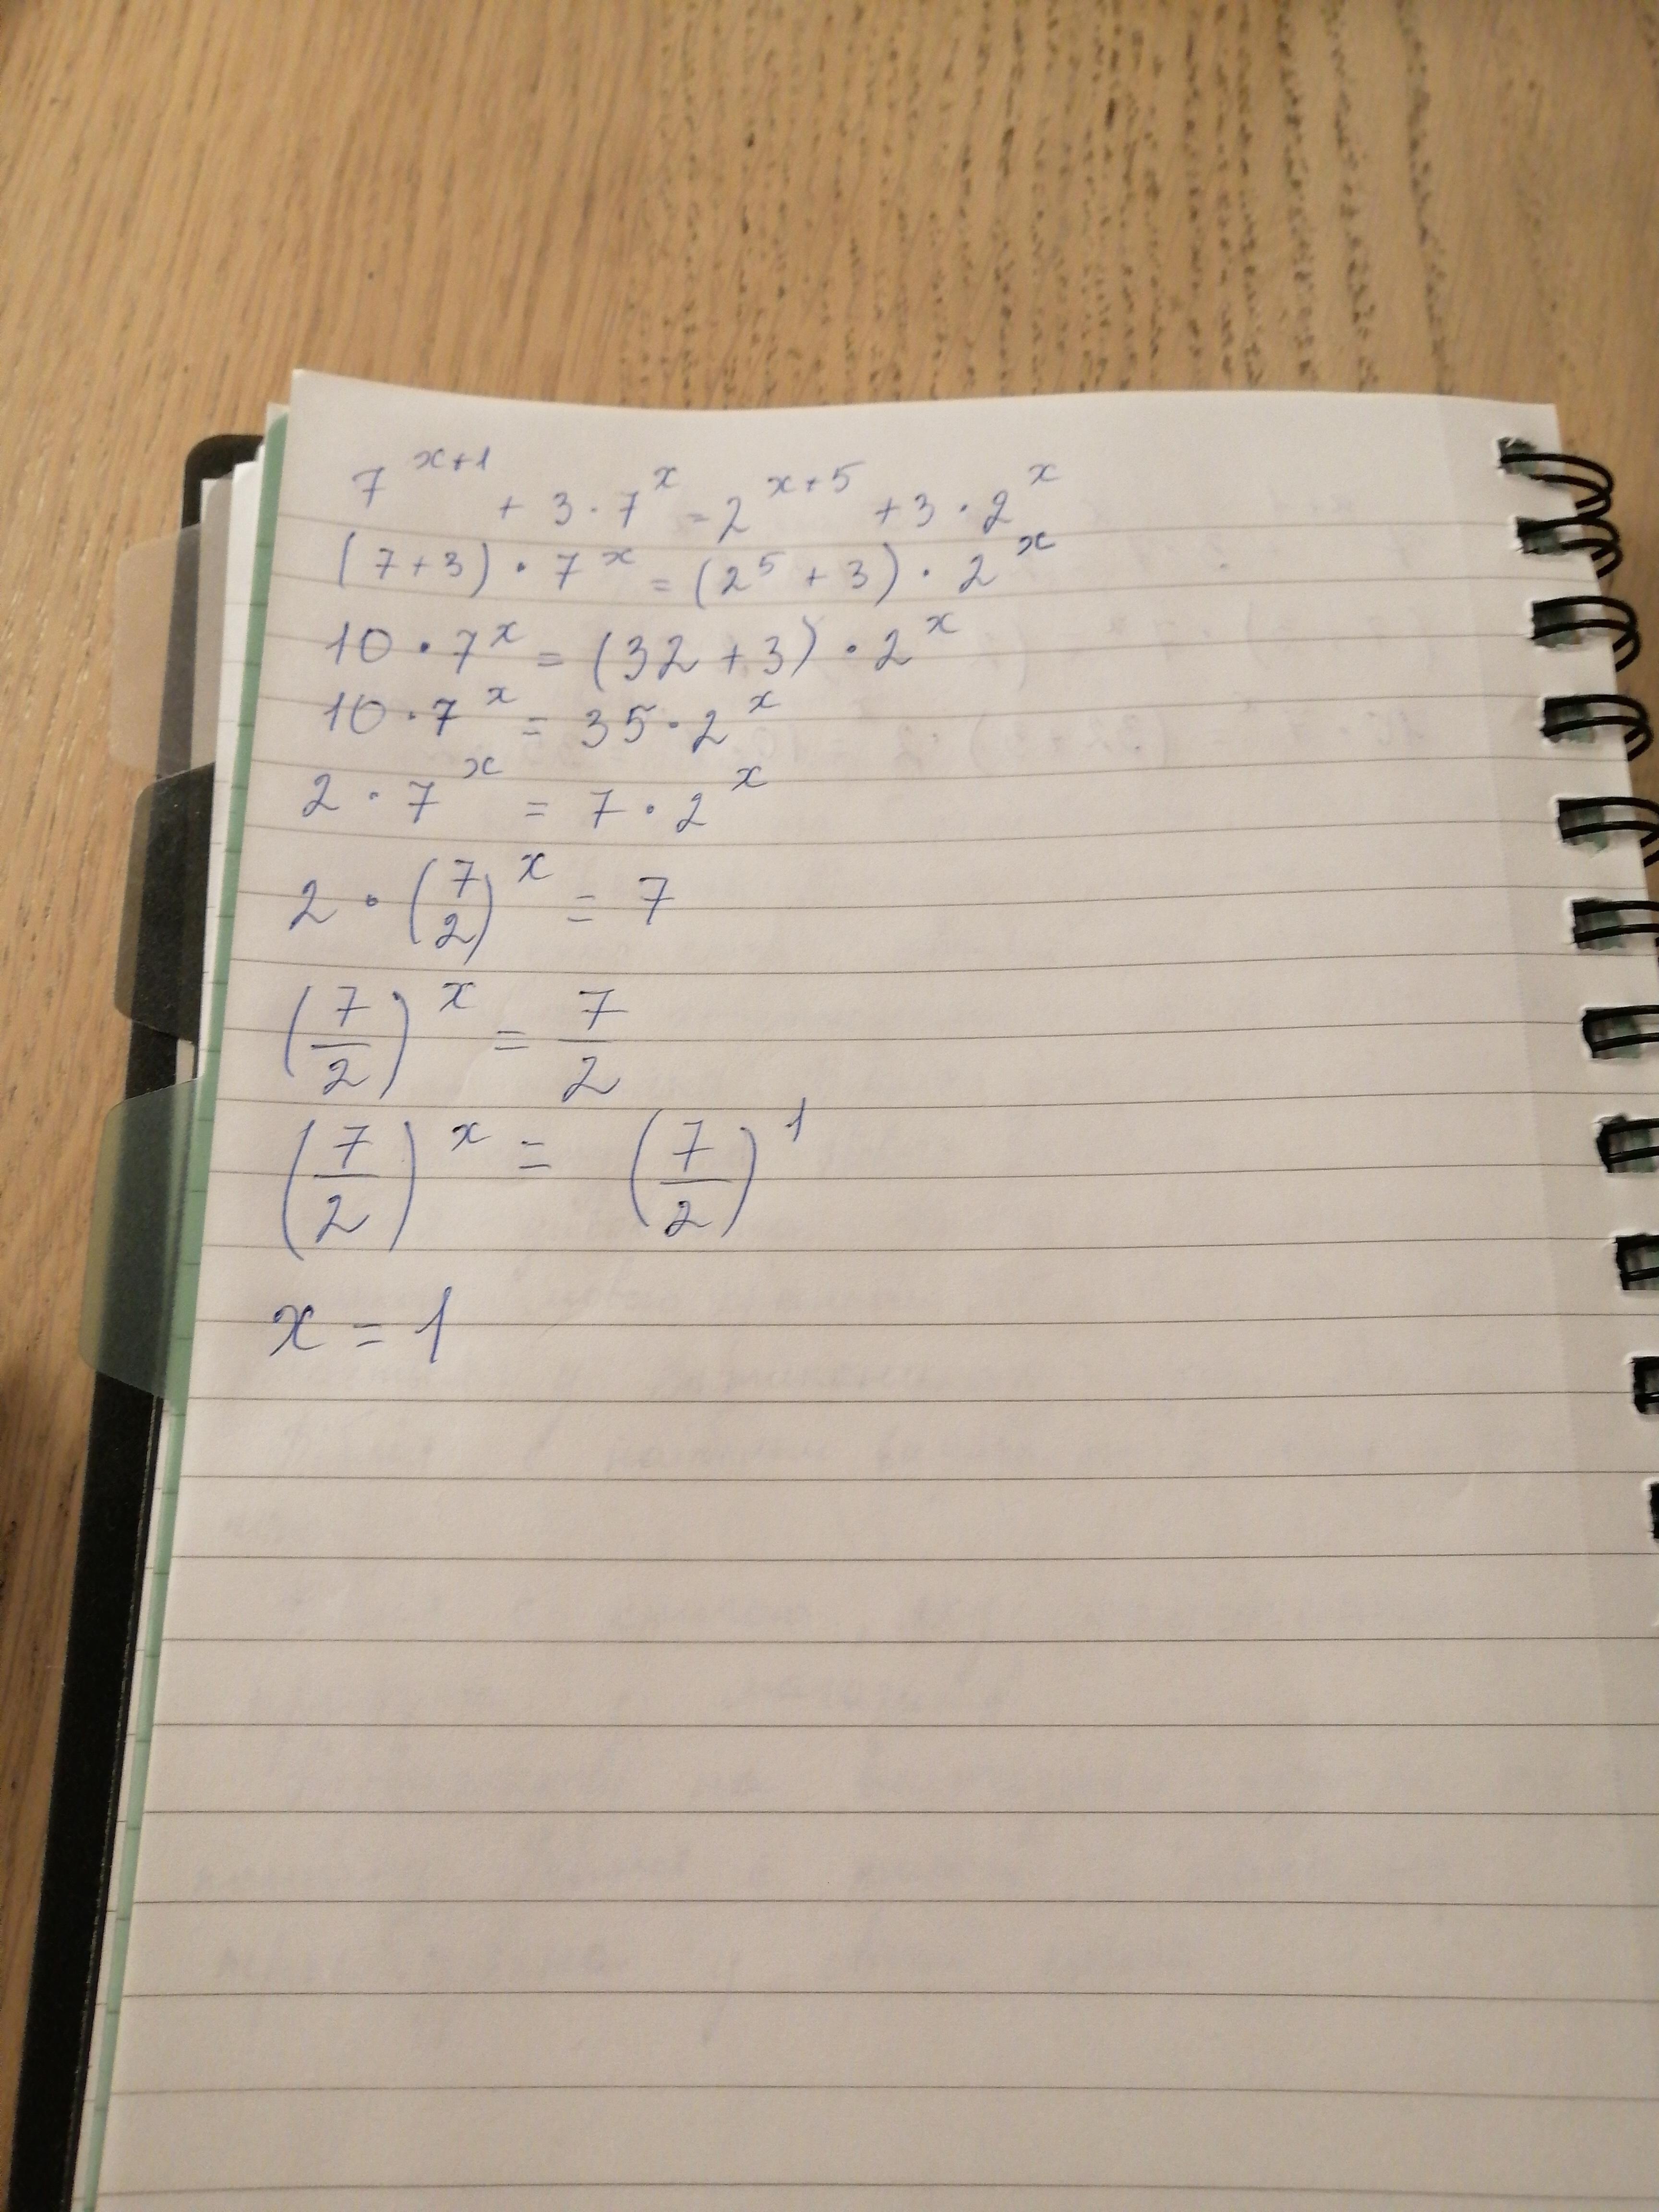 7^{x+1} + 3 · 7^x = 2^{x+5} + 3 · 2^x
(7+3) · 7^x = (2^5 + 3) · 2^x
10 · 7^x = (32 + 3) · 2^x
10 · 7^x = 35 · 2^x
2 · 7^x = 7 · 2^x
2 · (7/2)^x = 7
(7/2)^x = 7/2
(7/2)^x = (7/2)^1
x = 1